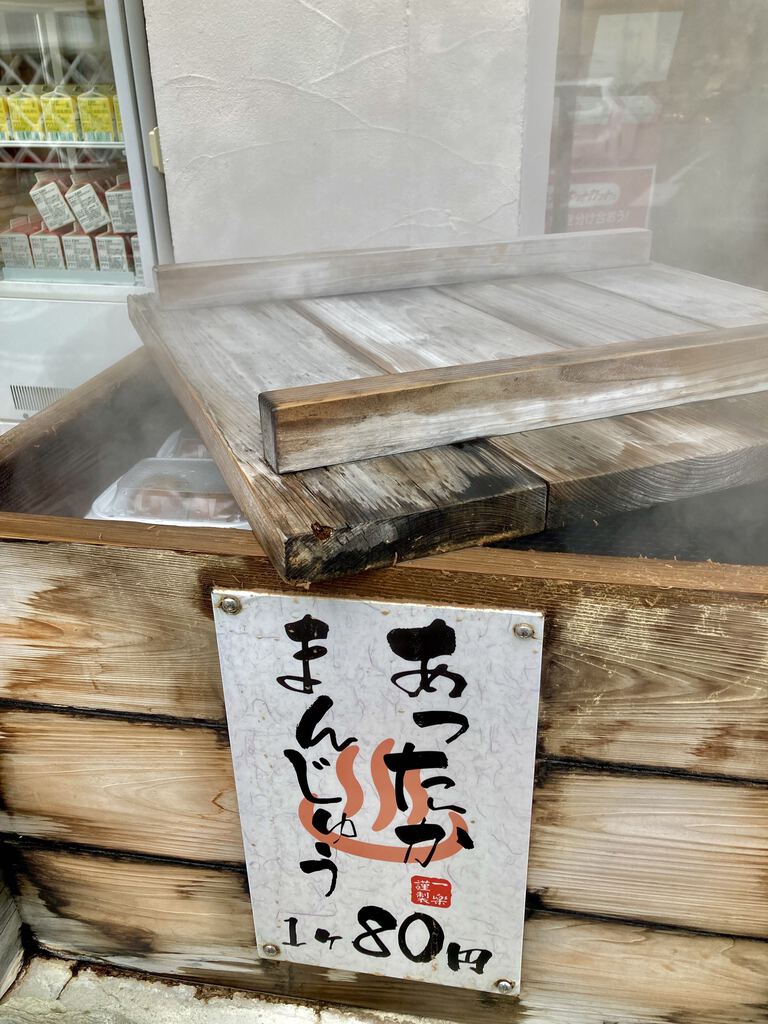 あったか
まんじゅう
1ヶ80円
一楽
謹製